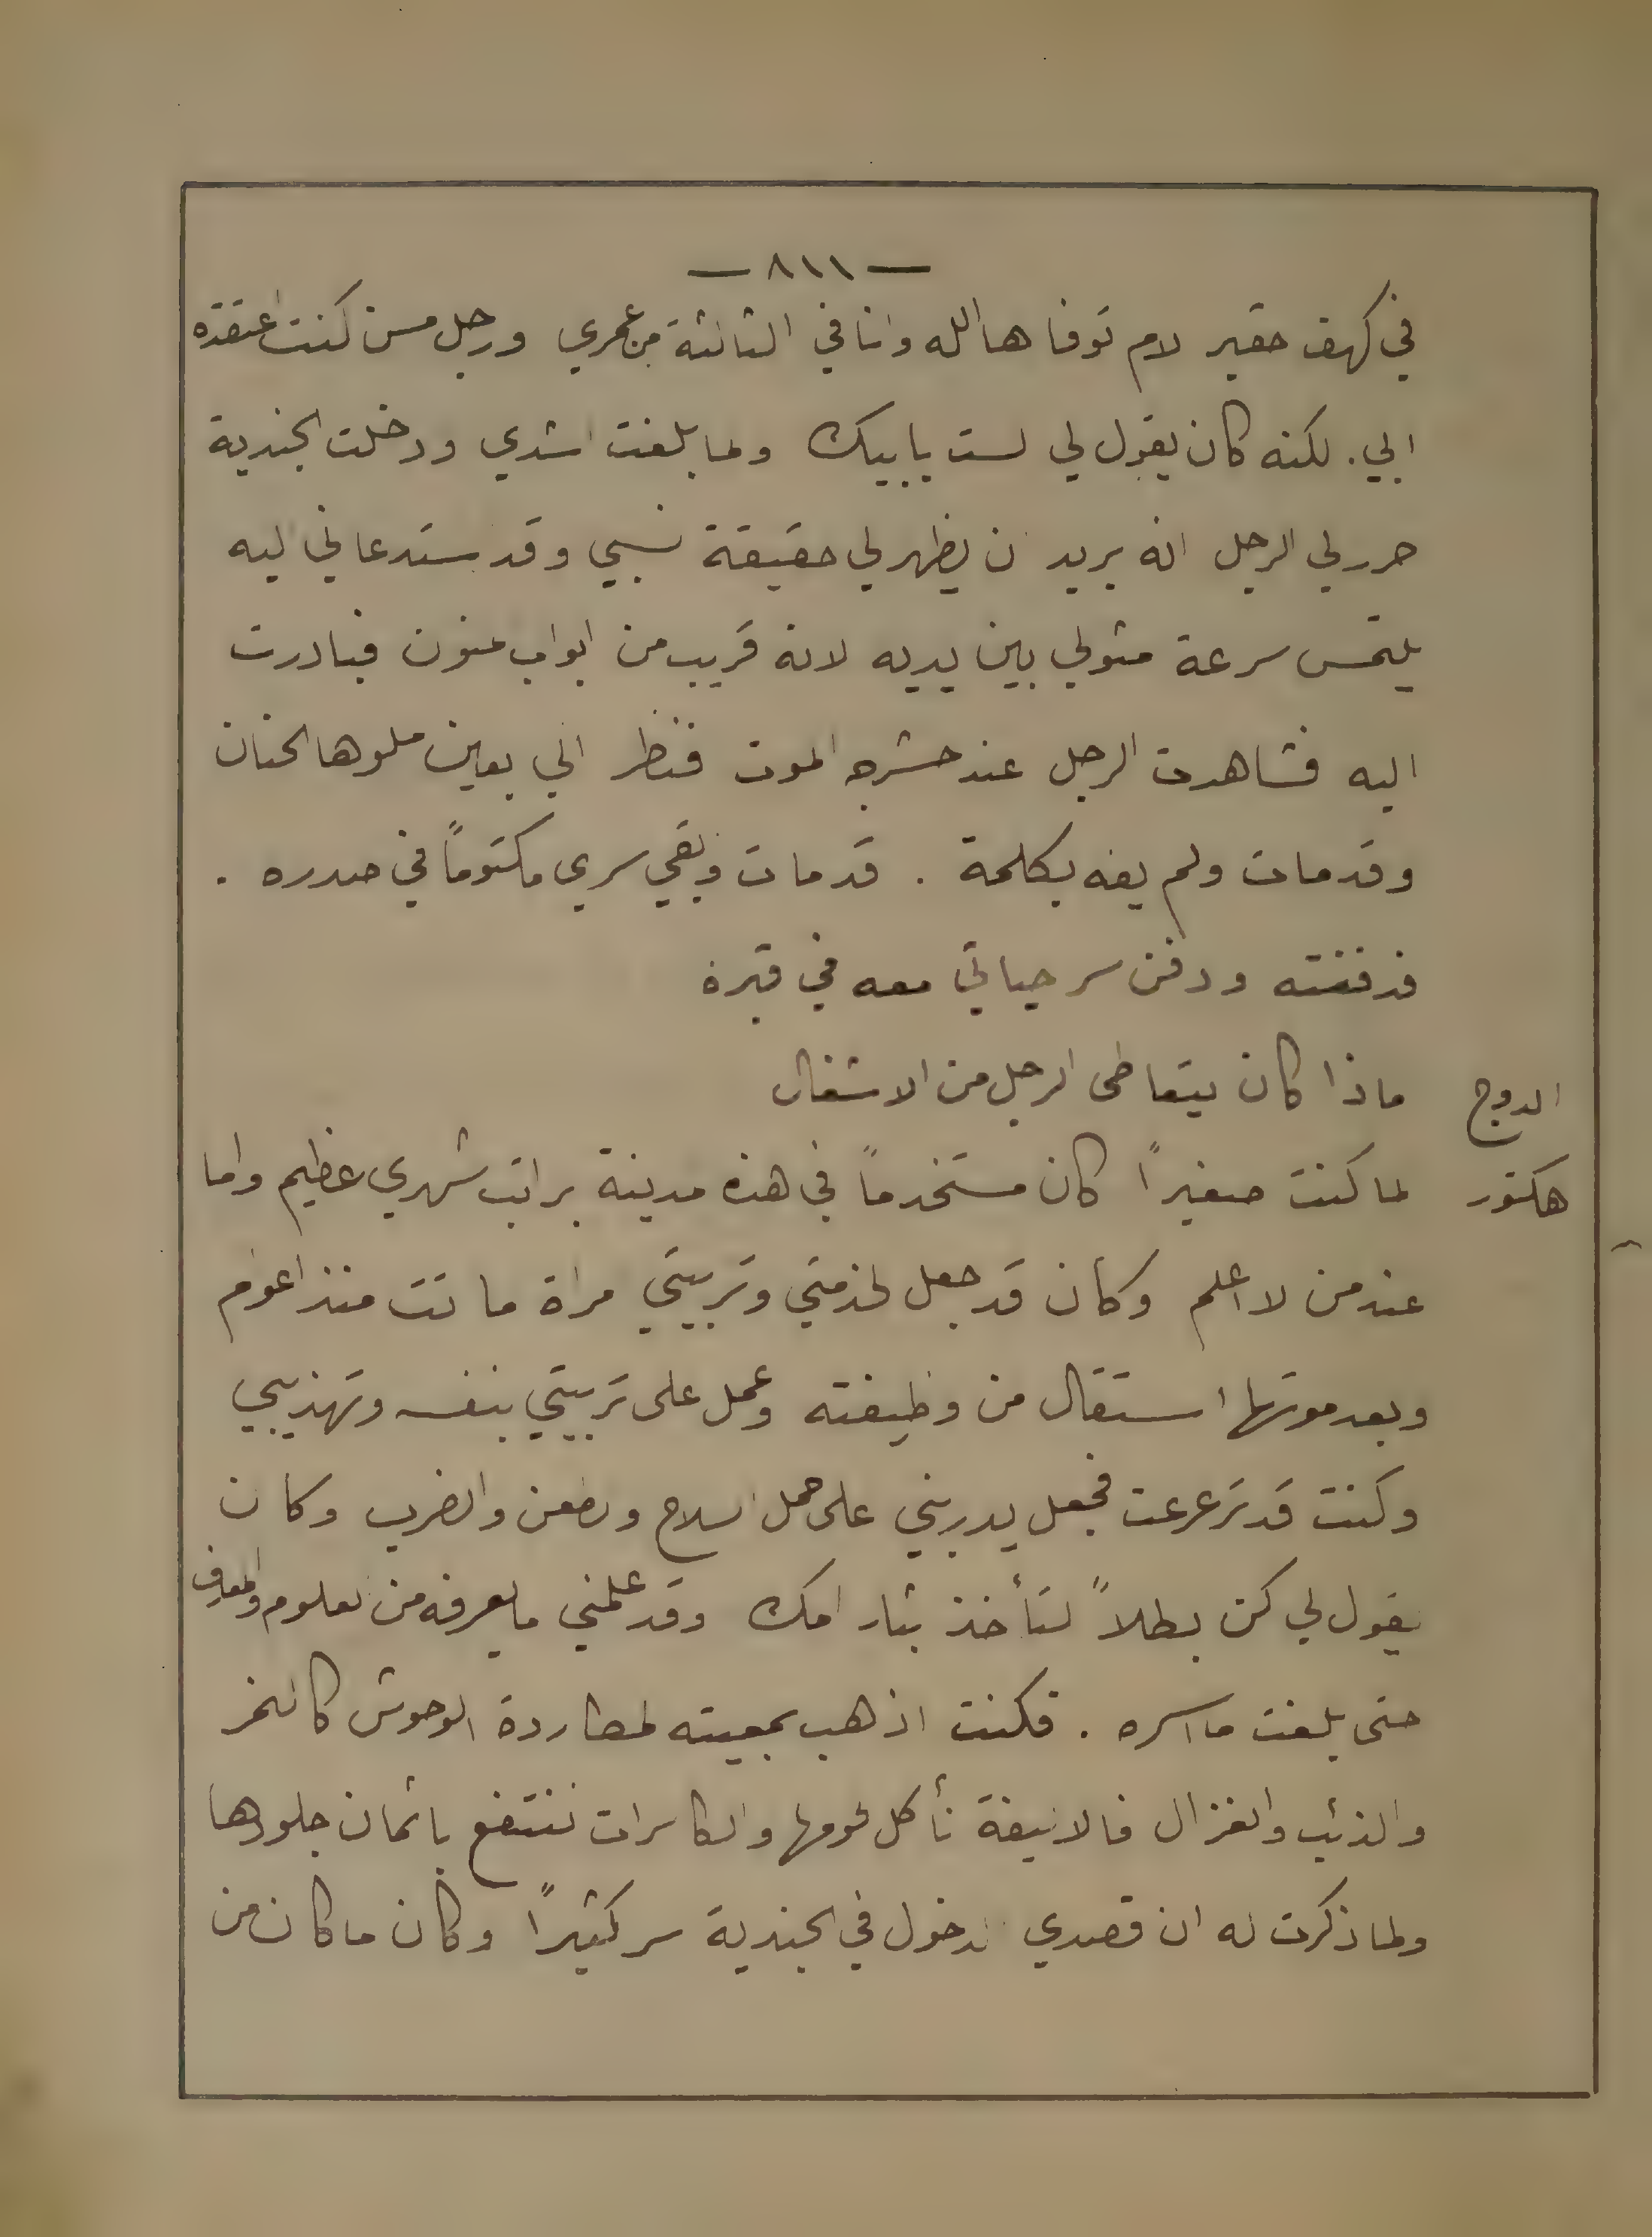 — ٨١١ —
في كهف حقير لام توفاها الله وانا في الثالثة من عمري ورجل مسن كنت اعتقده
ابي . لكنه كان يقول لي لست بابيك ولما بلغت اشدي ودخلت الجندية
حرر لي الرجل انه يريد ان يظهر لي حقيقة نسبي وقد ستدعاني ليه
يلتمس سرعة مثولي بين يديه لانه قريب من ابواب منون فبادرت
اليه فشاهدت الرجل عند حشرجه الموت فنظر الي بعين ملوها الحنان
وقد مات ولم يفه بكلمة . قد مات وبقي سري مكتوماً في صدره .
فدفنته ودفن سر حياتي معه في قبره
الدوج ماذا كان يتعاطى الرجل من الاشغال
هكتور لما كنت صغيراً كان مستخدماً في هذه مدينة براتب شهري عظيم واما
عند من لا اعلم وكان قد جعل لخدمتي وتربيتي مراة ماتت منذ اعوام
وبعد موتها استقال من وظيفته وعمل على تربيتي بنفسه وتهذيبي
وكنت قد ترعرعت فجعل يدربني على حمل السلاح ولطعن والضرب وكان
يقول لي كن بطلاً لتأخذ بثار امك وقد علمني ما يعرفه من لعلوم والمعارف
حتى بلغت ما اسره . فكنت اذهب بمعيته لمطاردة الوحوش كالنمر
والذئب والغزال فالانيفة نأكل لحومها والكاسرات ننتفع باثمان جلودها
ولما ذكرت له ان قصدي لدخول في الجندية سر كثيراً وكان ما كان من